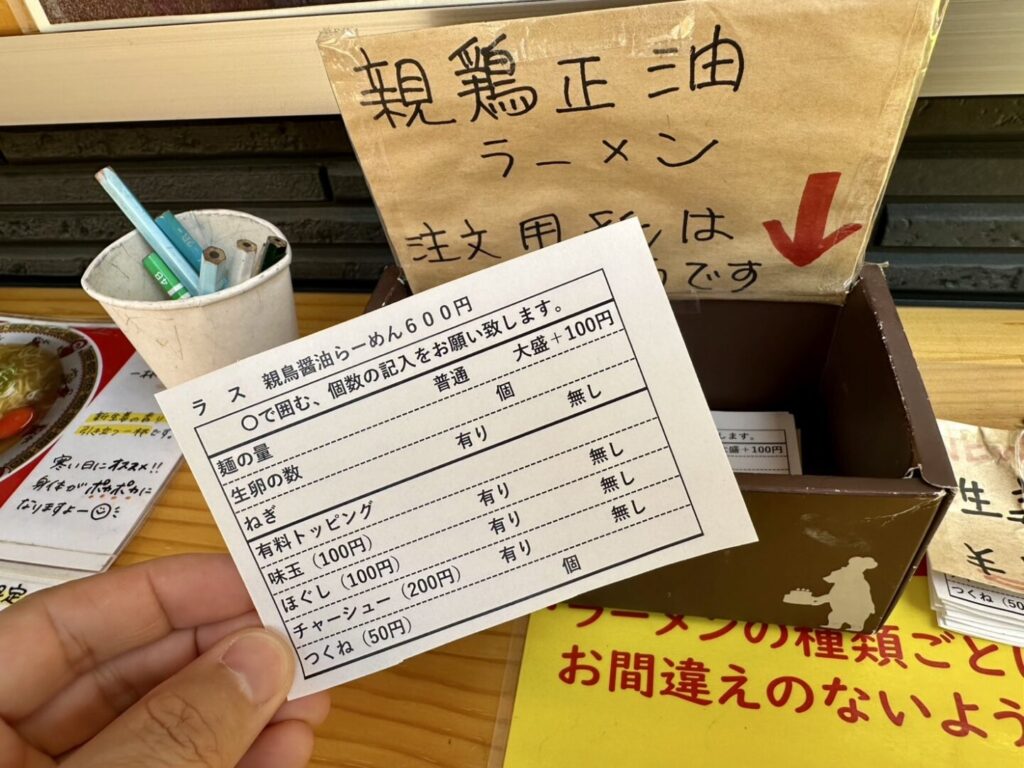 親鶏正油
ラーメン
注文用紙は
です
ラス 親鳥醤油らーめん600円
〇で囲む、個数の記入をお願い致します。
麺の量 普通 大盛+100円
生卵の数 個
ねぎ 有り 無し
有料トッピング
味玉(100円) 有り 無し
ほぐし(100円) 有り 無し
チャーシュー(200円) 有り 無し
つくね(50円) 個
します。
大盛+100円
4B
引き立つ一杯です。
寒い日にオススメ!!
身体がポカポカに
なりますよー
ラーメンの種類ごとに
お間違えのないよう
生
つくね(50